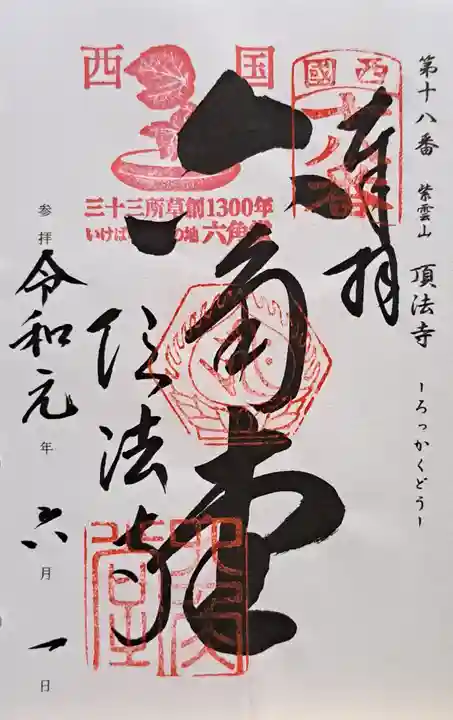 第十八番 紫雲山 頂法寺 ーろっかくどうー
奉拝
西国
六角堂
西国
三十三所草創1300年
いけばな の地 六角堂
頂法寺
参拝 令和元年 六月 一日